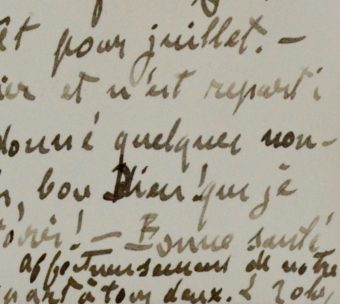 êt pour juillet. –
ier et n'est reparti
donné quelques nou-
, bon Dieu! que je
! – Bonne santé
affectueusement de notre
part à tous deux.